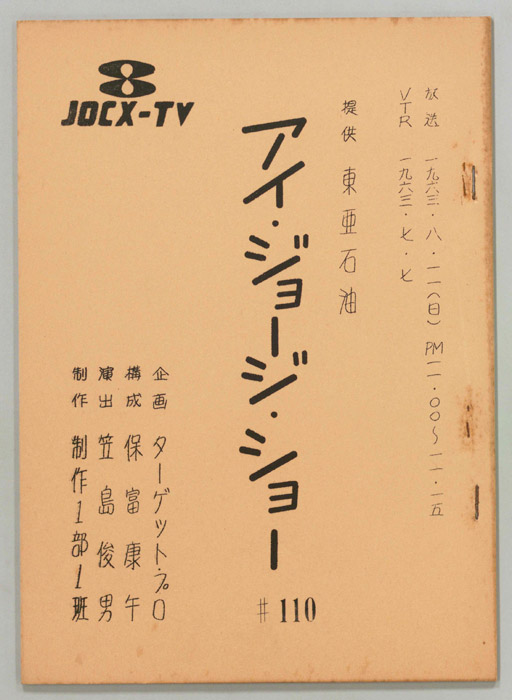 放送 一九六三・八・一一(日) PM一一・〇〇〜一一・一五
VTR 一九六三・七・七
提供 東亜石油
アイ・ジョージ・ショー
#110
JOCX-TV
企画 ターゲット・プロ
構成 保富康午
演出 笠島俊男
制作 制作1部1班